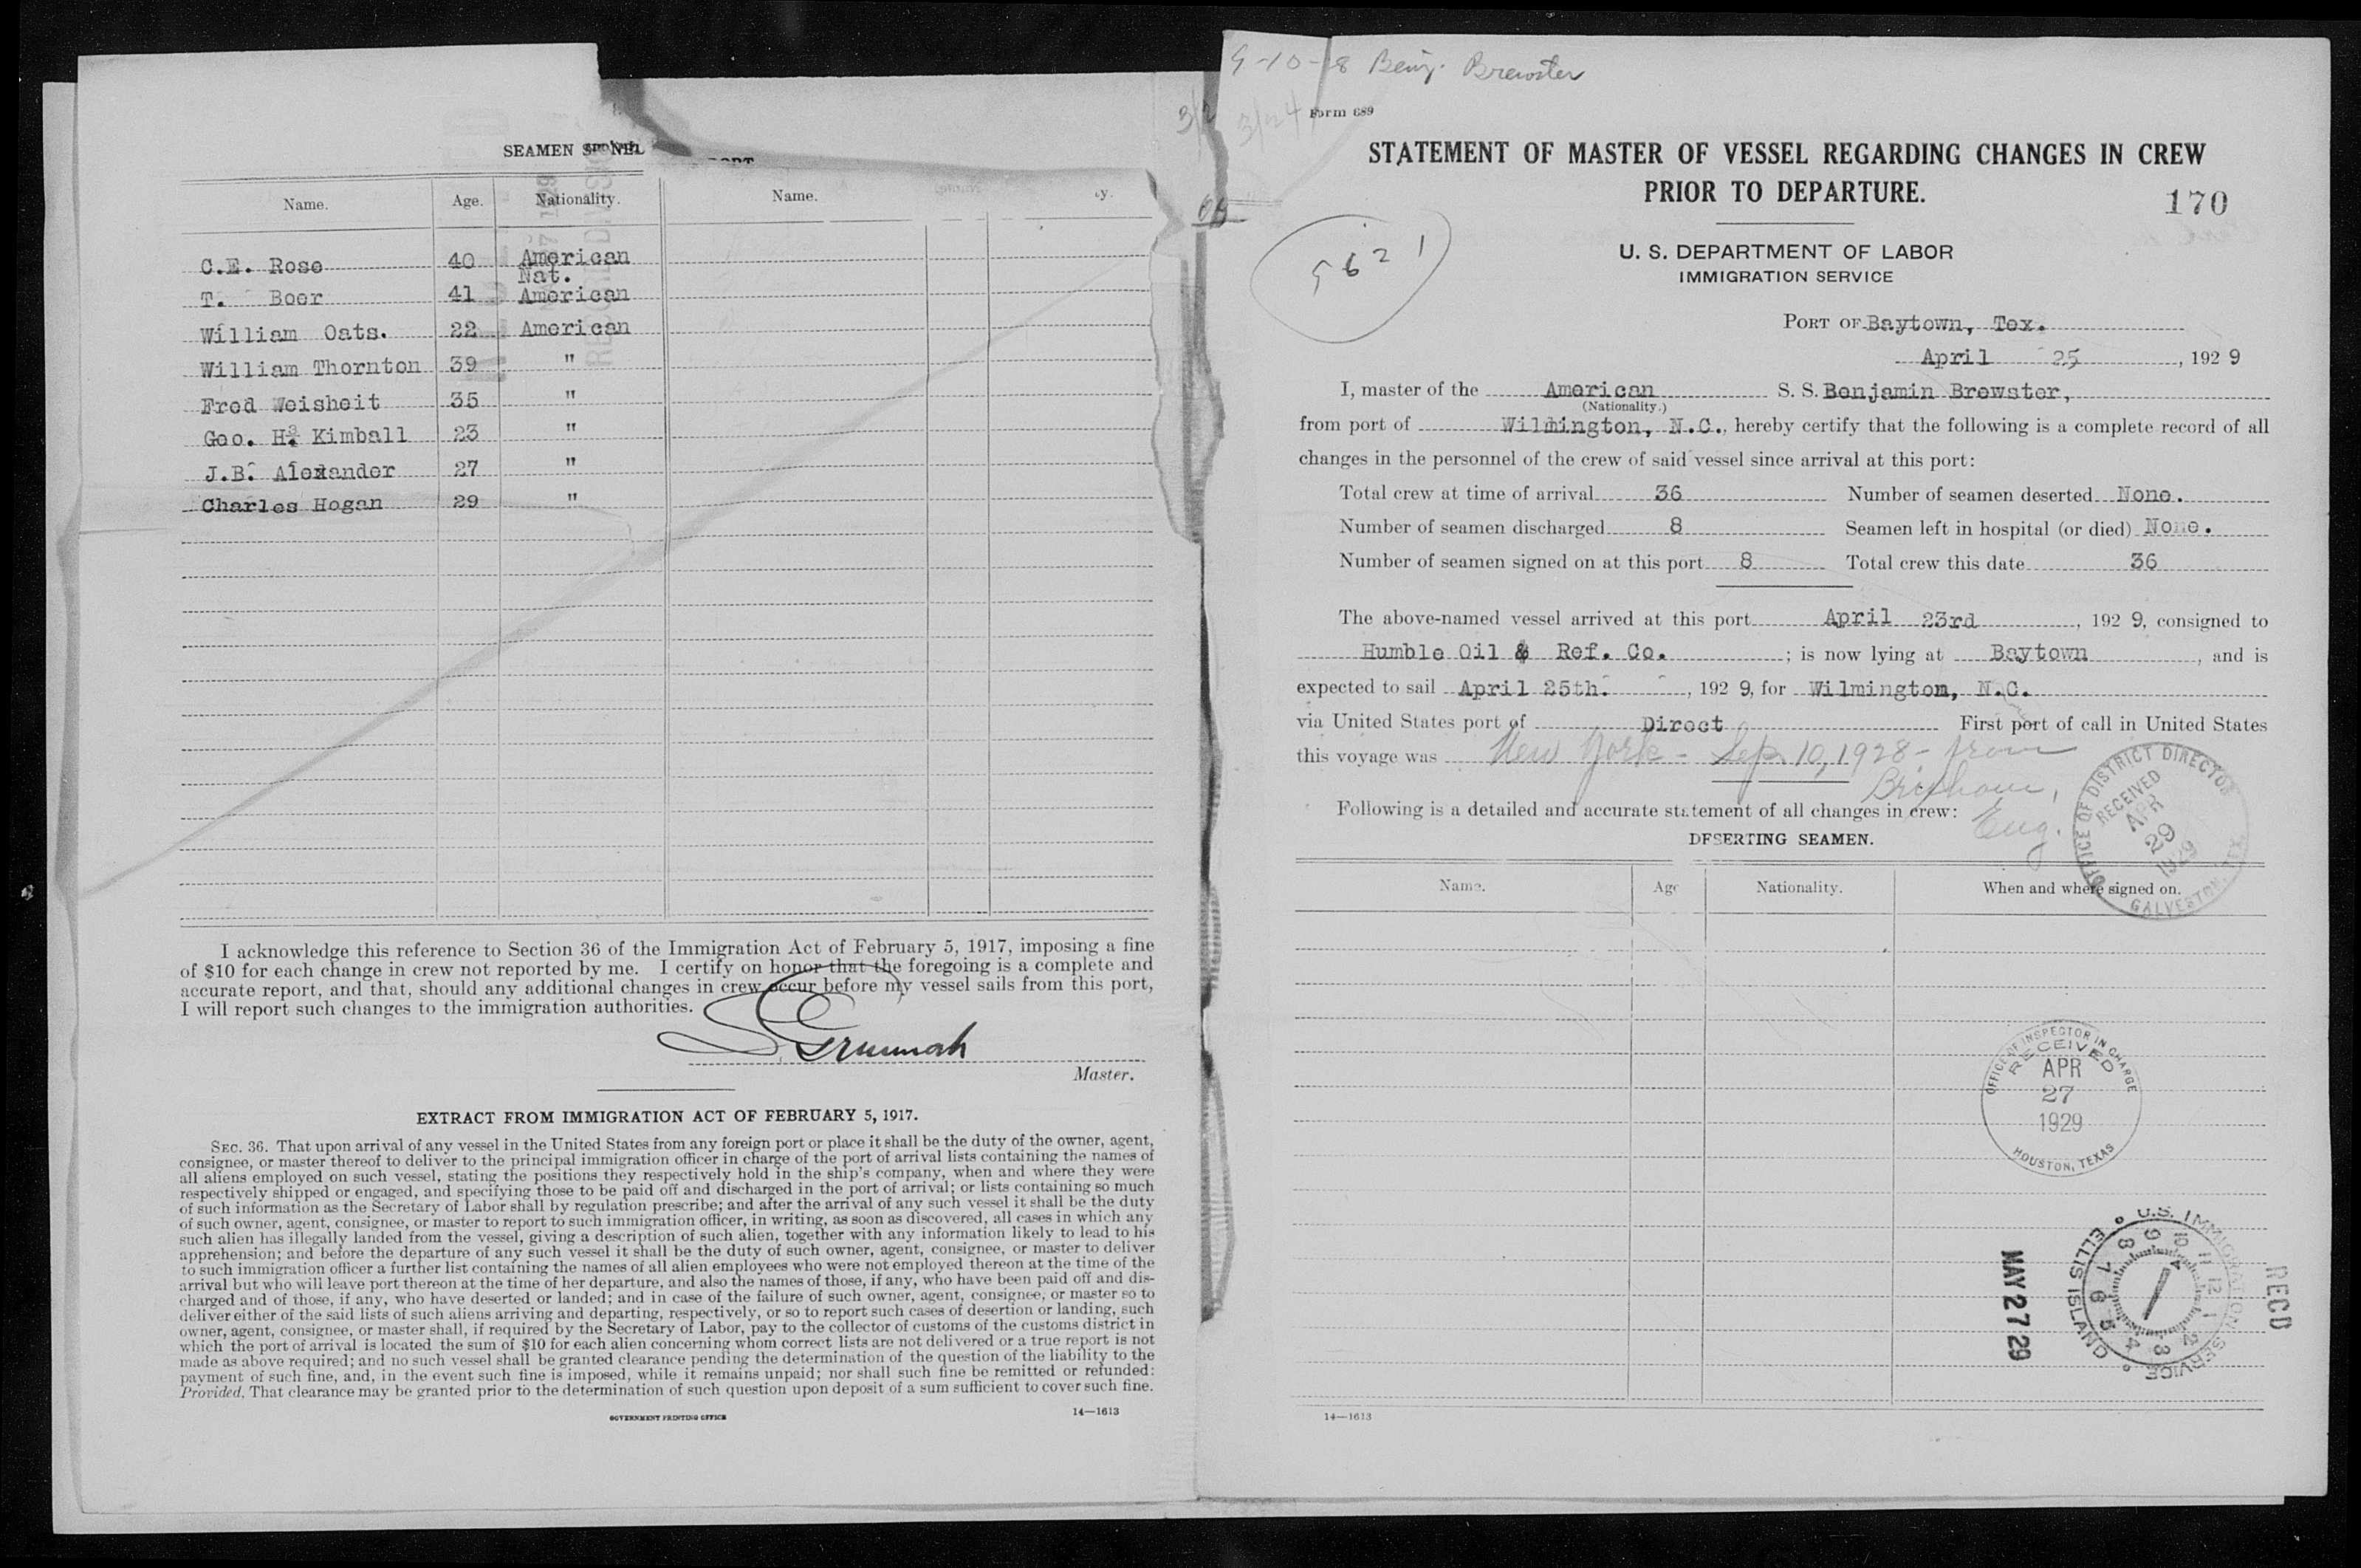 SEAMEN
Name. Age. Nationality. Name.
C.E. Rose 40 American
Nat.
T. Boer 41 American
William Oats. 22 American
William Thornton 39 "
Fred Weisheit 35 "
Geo. H. Kimball 23 "
J.B. Alexander 27 "
Charles Hogan 29 "
I acknowledge this reference to Section 36 of the Immigration Act of February 5, 1917, imposing a fine
of $10 for each change in crew not reported by me. I certify on honor that the foregoing is a complete and
accurate report, and that, should any additional changes in crew occur before my vessel sails from this port,
I will report such changes to the immigration authorities.
Master.
EXTRACT FROM IMMIGRATION ACT OF FEBRUARY 5, 1917.
SEC. 36. That upon arrival of any vessel in the United States from any foreign port or place it shall be the duty of the owner, agent,
consignee, or master thereof to deliver to the principal immigration officer in charge of the port of arrival lists containing the names of
all aliens employed on such vessel, stating the positions they respectively hold in the ship's company, when and where they were
respectively shipped or engaged, and specifying those to be paid off and discharged in the port of arrival; or lists containing so much
of such information as the Secretary of Labor shall by regulation prescribe; and after the arrival of any such vessel it shall be the duty
of such owner, agent, consignee, or master to report to such immigration officer, in writing, as soon as discovered, all cases in which any
such alien has illegally landed from the vessel, giving a description of such alien, together with any information likely to lead to his
apprehension; and before the departure of any such vessel it shall be the duty of such owner, agent, consignee, or master to deliver
to such immigration officer a further list containing the names of all alien employees who were not employed thereon at the time of the
arrival but who will leave port thereon at the time of her departure, and also the names of those, if any, who have been paid off and dis-
charged and of those, if any, who have deserted or landed; and in case of the failure of such owner, agent, consignee, or master so to
deliver either of the said lists of such aliens arriving and departing, respectively, or so to report such cases of desertion or landing, such
owner, agent, consignee, or master shall, if required by the Secretary of Labor, pay to the collector of customs of the customs district in
which the port of arrival is located the sum of $10 for each alien concerning whom correct lists are not delivered or a true report is not
made as above required; and no such vessel shall be granted clearance pending the determination of the question of the liability to the
payment of such fine, and, in the event such fine is imposed, while it remains unpaid; nor shall such fine be remitted or refunded:
Provided, That clearance may be granted prior to the determination of such question upon deposit of a sum sufficient to cover such fine.
GOVERNMENT PRINTING OFFICE 14—1613
9-10-28 Benj. Brewster
3/24
Form 689
STATEMENT OF MASTER OF VESSEL REGARDING CHANGES IN CREW
PRIOR TO DEPARTURE.
170
5621
U. S. DEPARTMENT OF LABOR
IMMIGRATION SERVICE
PORT OF Baytown, Tex.
April 25, 1929
I, master of the American S. S. Benjamin Brewster,
(Nationality.)
from port of Wilmington, N.C., hereby certify that the following is a complete record of all
changes in the personnel of the crew of said vessel since arrival at this port:
Total crew at time of arrival 36 Number of seamen deserted None.
Number of seamen discharged 8 Seamen left in hospital (or died) None.
Number of seamen signed on at this port 8 Total crew this date 36
The above-named vessel arrived at this port April 23rd, 1929, consigned to
Humble Oil & Ref. Co.; is now lying at Baytown, and is
expected to sail April 25th., 1929, for Wilmington, N.C.
via United States port of Direct First port of call in United States
this voyage was New York - Sep. 10, 1928 - from
Brixham,
Eng.
Following is a detailed and accurate statement of all changes in crew:
DESERTING SEAMEN.
Name. Age Nationality. When and where signed on.
OFFICE OF DISTRICT DIRECTOR
RECEIVED
APR
29
1929
GALVESTON, TEX.
OFFICE OF INSPECTOR IN CHARGE
RECEIVED
APR
27
1929
HOUSTON, TEXAS
RECD
U.S. IMMIGRATION SERVICE
ELLIS ISLAND
1 2 3 4 5 6 7 8 9 10 11 12
MAY 27 29
14—1613